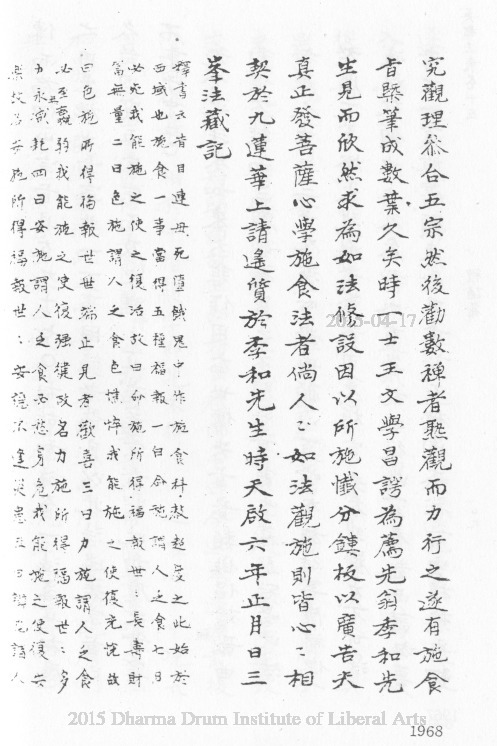 究觀理恭台五宗然後勸數禪者熟觀而力行之遂有施食
旨槩筆成數葉久矣時一士王文學昌諤為薦先翁季和先
生見而欣然求為如法修設因以所施懺分鏤板以廣告夫
真正發菩薩心學施食法者倘人〻如法觀施則皆心〻相
契於九蓮華上請遙質於季和先生時天啟六年正月日三
峯法藏記
釋書云昔目連母死墮餓鬼中作施食科救超度之此始於
西域也施食一事當得五種福報一曰命施謂人之食七日
必死我能施之使之復活故曰命施所得福報世〻長壽財
富無量二曰色施謂人之食色憔悴我能施之使復光悅故
曰色施所得福報世世端正見者歡喜三曰力施謂人之食
必至羸弱我能施之使復强健故名力施所得福報世〻多
力永無耗四曰安施謂人之食西愁身危我能施之使復安
樂故名安施所得福報世〻安隱不逢災患五曰辯施謂人
2015-04-17
2015 Dharma Drum Institute of Liberal Arts
1968